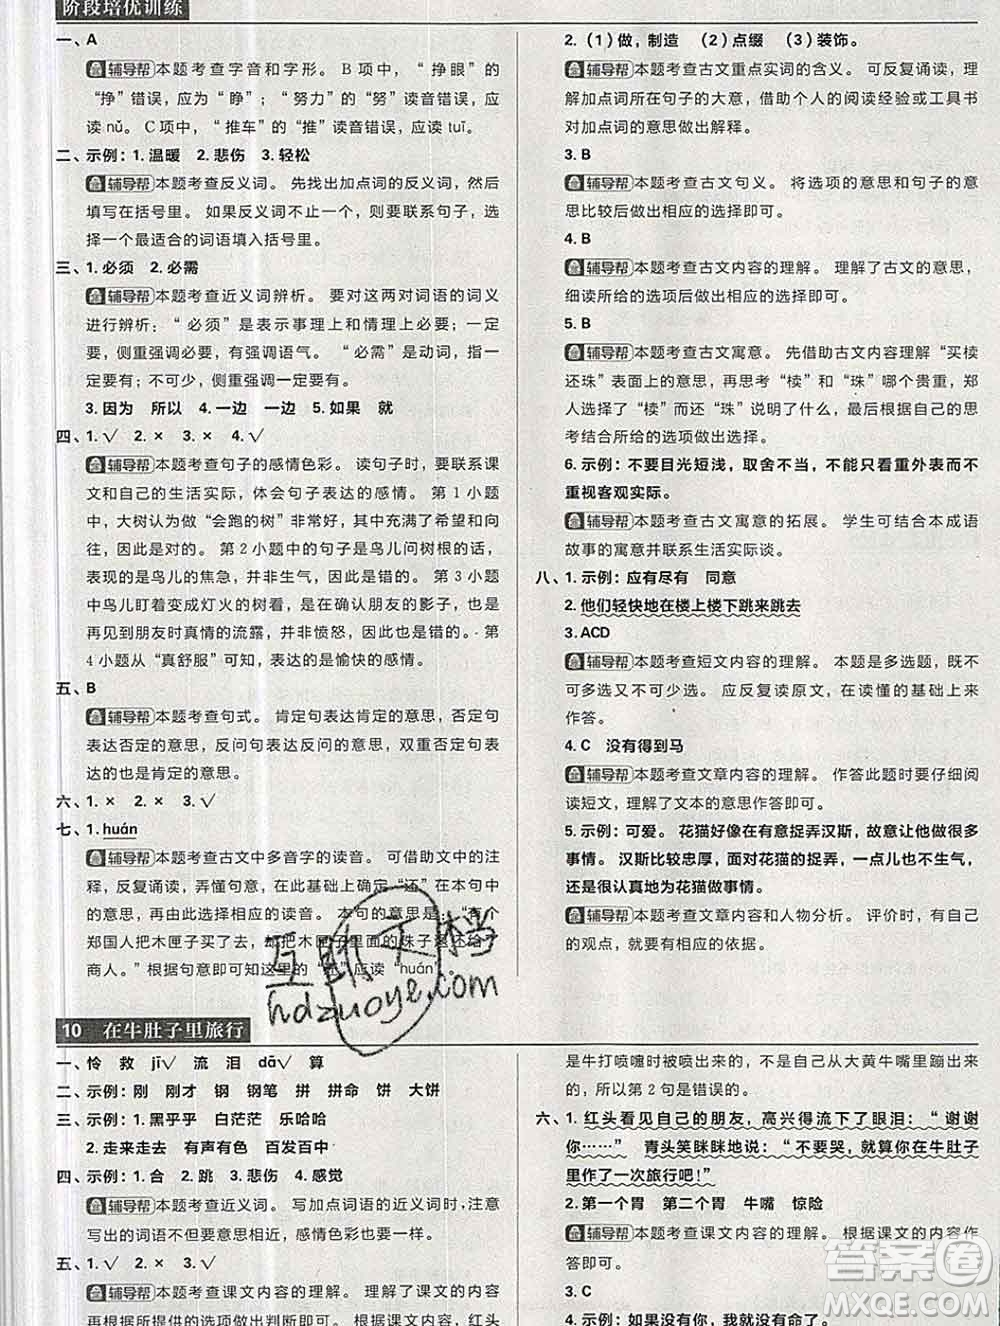 阶段培优训练
一、A
辅导帮 本题考查字音和字形。B项中，“挣眼”的
“挣”错误，应为“睁”；“努力”的“努”读音错误，应
读nǔ。C项中，“推车”的“推”读音错误，应读tuī。
二、示例：1.温暖 2.悲伤 3.轻松
辅导帮 本题考查反义词。先找出加点词的反义词，然后
填写在括号里。如果反义词不止一个，则要联系句子，选
择一个最适合的词语填入括号里。
三、1.必须 2.必需
辅导帮 本题考查近义词辨析。要对这两对词语的词义
进行辨析：“必须”是表示事理上和情理上必要；一定
要，侧重强调必要，有强调语气。“必需”是动词，指一
定要有；不可少，侧重强调一定要有。
3.因为 所以 4.一边 一边 5.如果 就
四、1.√ 2.× 3.× 4.√
辅导帮 本题考查句子的感情色彩。读句子时，要联系课
文和自己的生活实际，体会句子表达的感情。第1小题
中，大树认为做“会跑的树”非常好，对此充满了希望和向
往，因此是对的。第2小题中的句子是鸟儿问树根的话，
表现的是鸟儿的焦急，并非生气，因此是错的。第3小题
中鸟儿盯着变成灯火的树看，是在确认朋友的影子，也是
再见到朋友时真情的流露，并非愤怒，因此也是错的。第
4小题从“真舒服”可知，表达的是愉快的感情。
五、B
辅导帮 本题考查句式。肯定句表达肯定的意思，否定句
表达否定的意思，反问句表达反问的意思，双重否定句表
达的也是肯定的意思。
六、1.× 2.× 3.√
七、1.huán
辅导帮 本题考查古文中多音字的读音。可借助文中的注
释，反复诵读，弄懂句意，在此基础上确定“还”在本句中
的意思，并做出相应的读音。本句的意思是：“有个
郑国人把木匣子买了，却把木匣子里面的珠子退还给了
商人。”根据句意即可知这里的“还”应读“huán”。
2.（1）做，制造 （2）点缀 （3）装饰。
辅导帮 本题考查古文重点实词的含义。可反复诵读，理
解加点词所在句子的大意，借助个人的阅读经验或工具书
对加点词的意思做出解释。
3.B
辅导帮 本题考查古文句义。将选项的意思和句子的意
思比较后做出相应的选择即可。
4.B
辅导帮 本题考查古文内容的理解。理解了古文的意思，
细读所给的选项后做出相应的选择即可。
5.B
辅导帮 本题考查古文寓意。先借助古文内容理解“买椟
还珠”表面上的意思，再思考“椟”和“珠”哪个贵重，郑
人选择了“椟”而还“珠”说明了什么，最后根据自己的思
考结合所给的选项做出选择。
6.示例：不要目光短浅，取舍不当，不能只看重外表而不
重视客观实际。
辅导帮 本题考查古文寓意的拓展。学生可结合本成语
故事的寓意并联系生活实际谈。
八、1.示例：应有尽有 同意
2.他们轻快地在楼上楼下跳来跳去
3.ACD
辅导帮 本题考查短文内容的理解。本题是多选题，既不
可多选又不可少选。应反复读原文，在读懂的基础上来
作答。
4.C 没有得到马
辅导帮 本题考查文章内容的理解。作答此题时要仔细阅
读短文，理解了文本的意思作答即可。
5.示例：可爱。花猫好像在有意捉弄汉斯，故意让他做很多
事情。汉斯比较忠厚，面对花猫的捉弄，一点儿也不生气，
还是很认真地为花猫做事情。
辅导帮 本题考查文章内容和人物分析。评价时，有自己
的观点，就要有相应的依据。
互助文档
hdzuoye.com
10 在牛肚子里旅行
一、怜 救 jī√ 流 泪 dā√ 算
二、示例：刚 刚才 钢 钢笔 拼 拼命 饼 大饼
三、示例：1.黑乎乎 白茫茫 乐哈哈
2.走来走去 有声有色 百发百中
四、示例：1.合 2.跳 3.悲伤 4.感觉
辅导帮 本题考查近义词。写加点词语的近义词时，注意
写出的词语要与原词意思相近，感情色彩相同。
五、1.√ 2.× 3.√
辅导帮 本题考查课文内容的理解。理解了课文的内容
再根据所提供的选项做出判断即可。第2小题，红头
是牛打喷嚏时被喷出来的，不是自己从大黄牛嘴里蹦出来
的，所以第2句是错误的。
六、1.红头看见自己的朋友，高兴得流下了眼泪：“谢谢
你……” 青头笑眯眯地说：“不要哭，就算你在牛肚子
里作了一次旅行吧！”
2.第一个胃 第二个胃 牛嘴 惊险
辅导帮 本题考查课文内容的理解。根据课文的内容作
答即可。
3.C
4.示例：如果没有你，我就没有命了。
答案圈
MXQE.COM